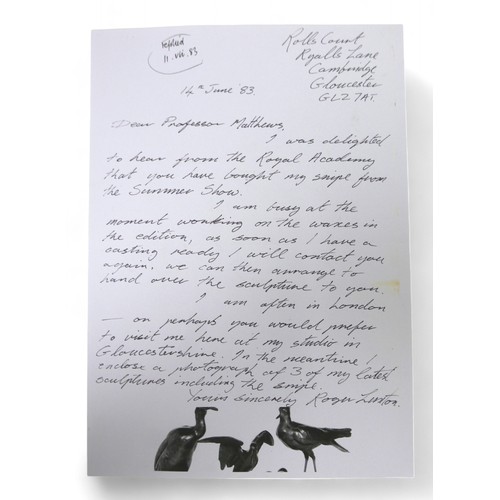 replied
11.VII.83
Rolls Court
Ryalls Lane
Cambridge
Gloucester
GL2 7AT.
14th June '83
Dear Professor Matthews,
I was delighted
to hear from the Royal Academy
that you have bought my snipe from
the Summer Show.
I am busy at the
moment working on the waxes in
the edition, as soon as I have a
casting ready I will contact you
again. we can then arrange to
hand over the sculpture to you.
I am often in London
— or perhaps you would prefer
to visit me here at my studio in
Gloucestershire. In the meantime I
enclose a photograph of 3 of my latest
sculptures including the snipe.
Yours sincerely Roger Linton.